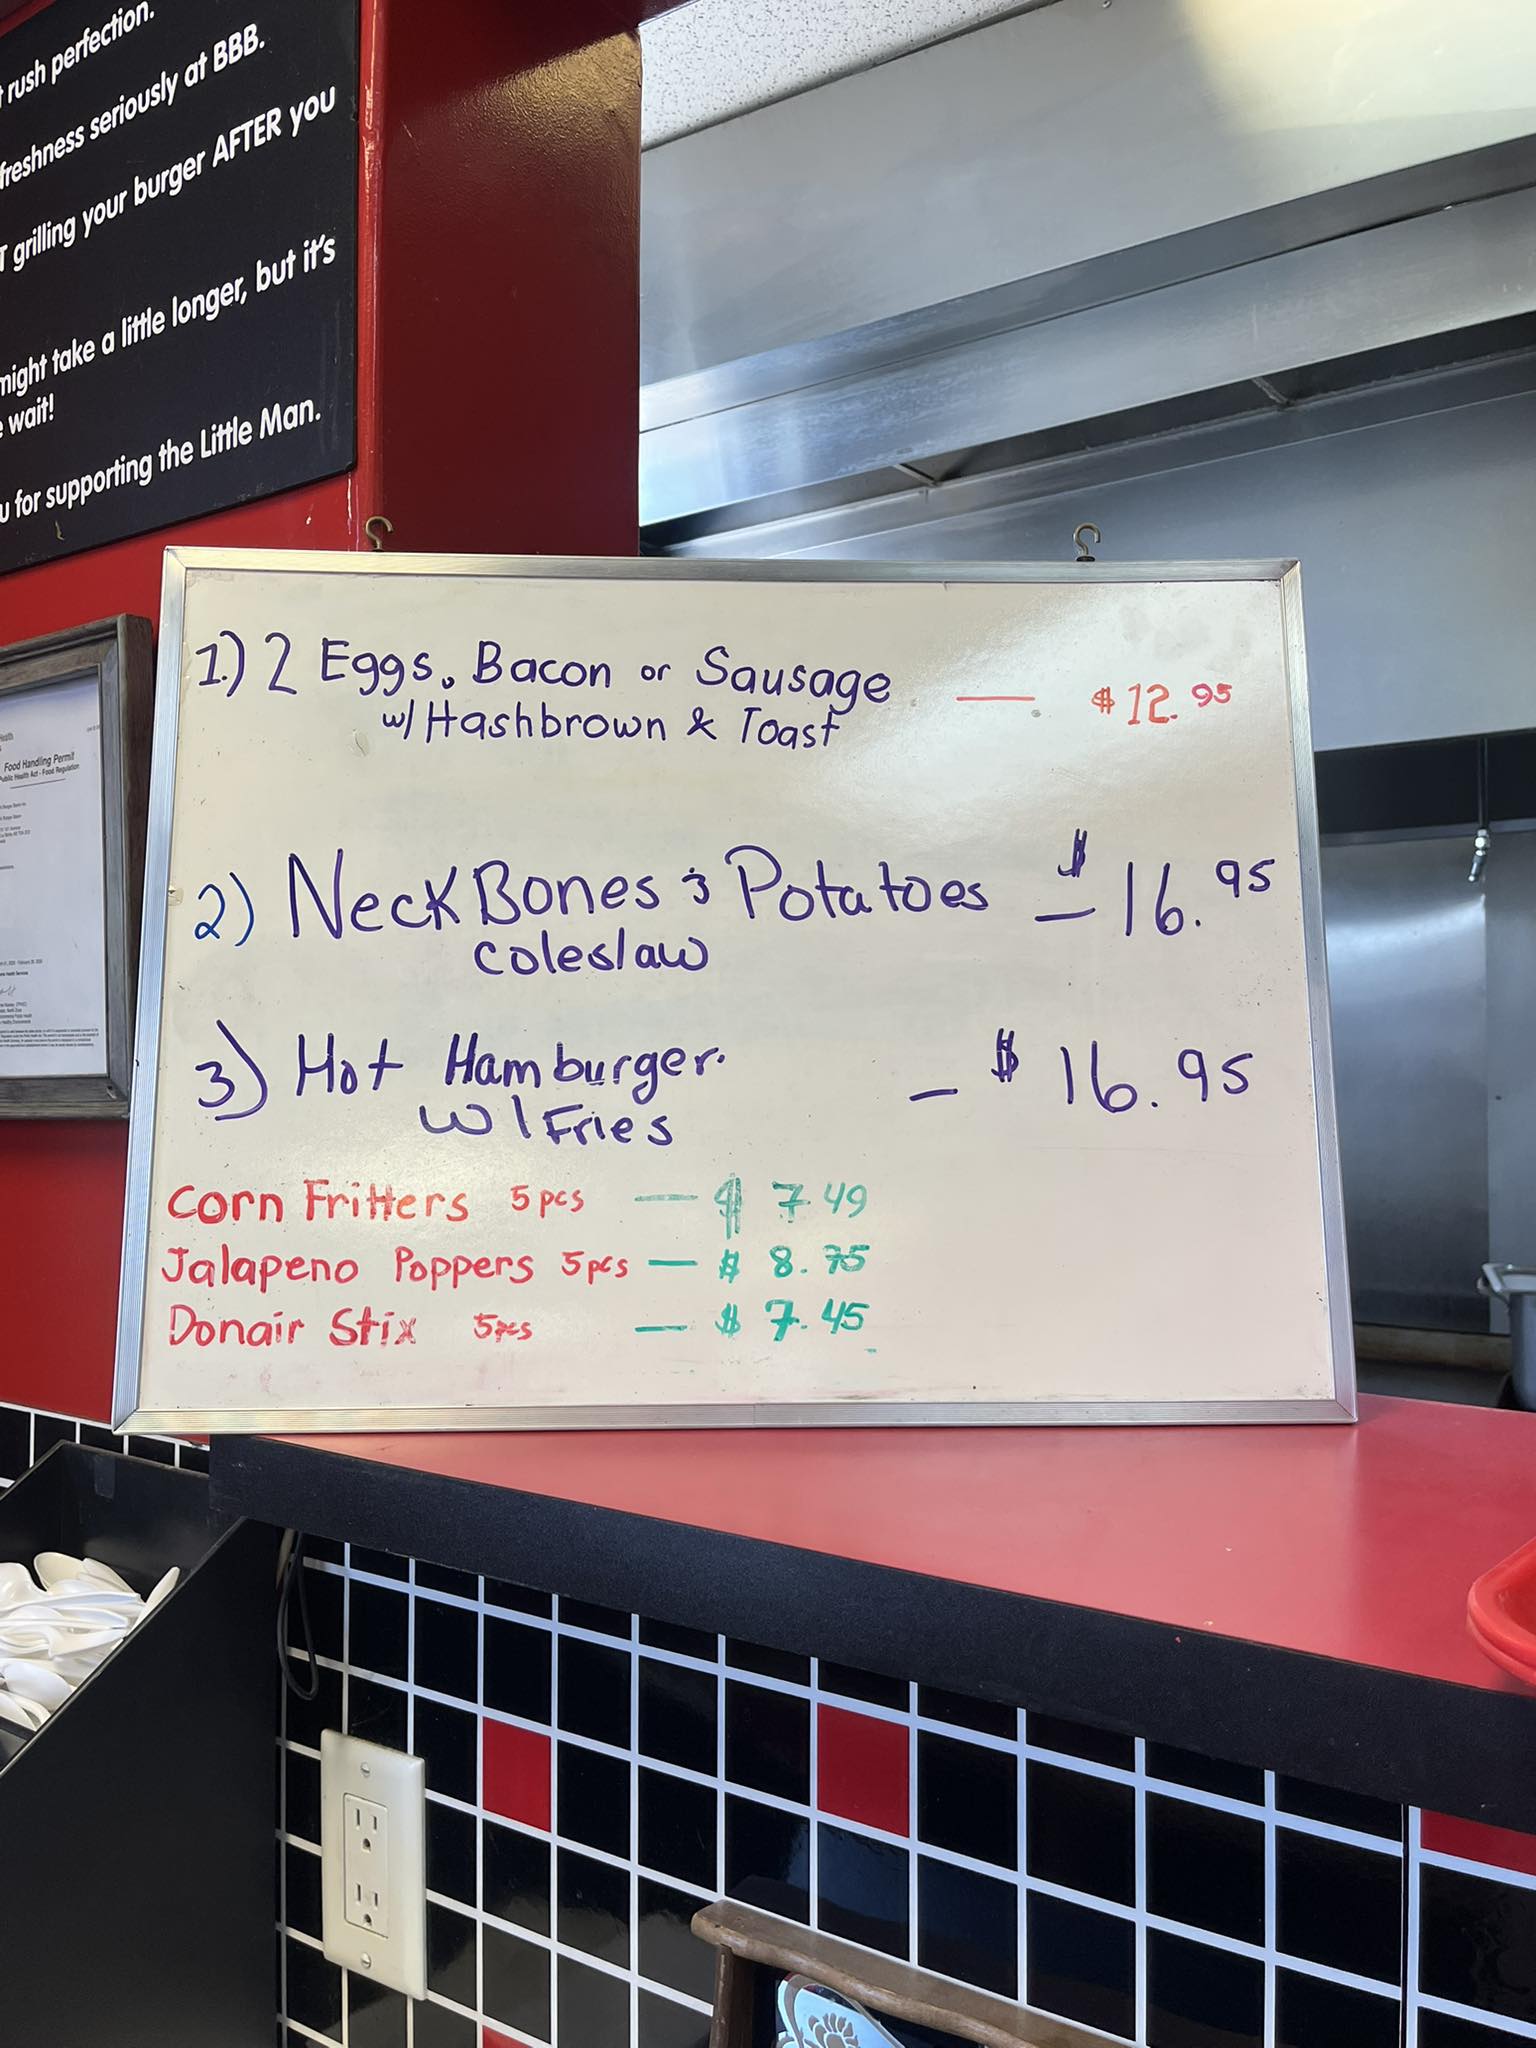 rush perfection.
freshness seriously at BBB.
grilling your burger AFTER you
might take a little longer, but it's
wait!
for supporting the Little Man.
Food Handling Permit
Public Health Act - Food Regulation
1.) 2 Eggs. Bacon or Sausage — $12.95
w/ Hashbrown & Toast
2) Neck Bones & Potatoes — $16.95
coleslaw
3) Hot Hamburger. — $16.95
w/ Fries
Corn Fritters 5 pcs — $ 7.49
Jalapeno Poppers 5 pcs — $ 8.75
Donair Stix 5 pcs — $ 7.45